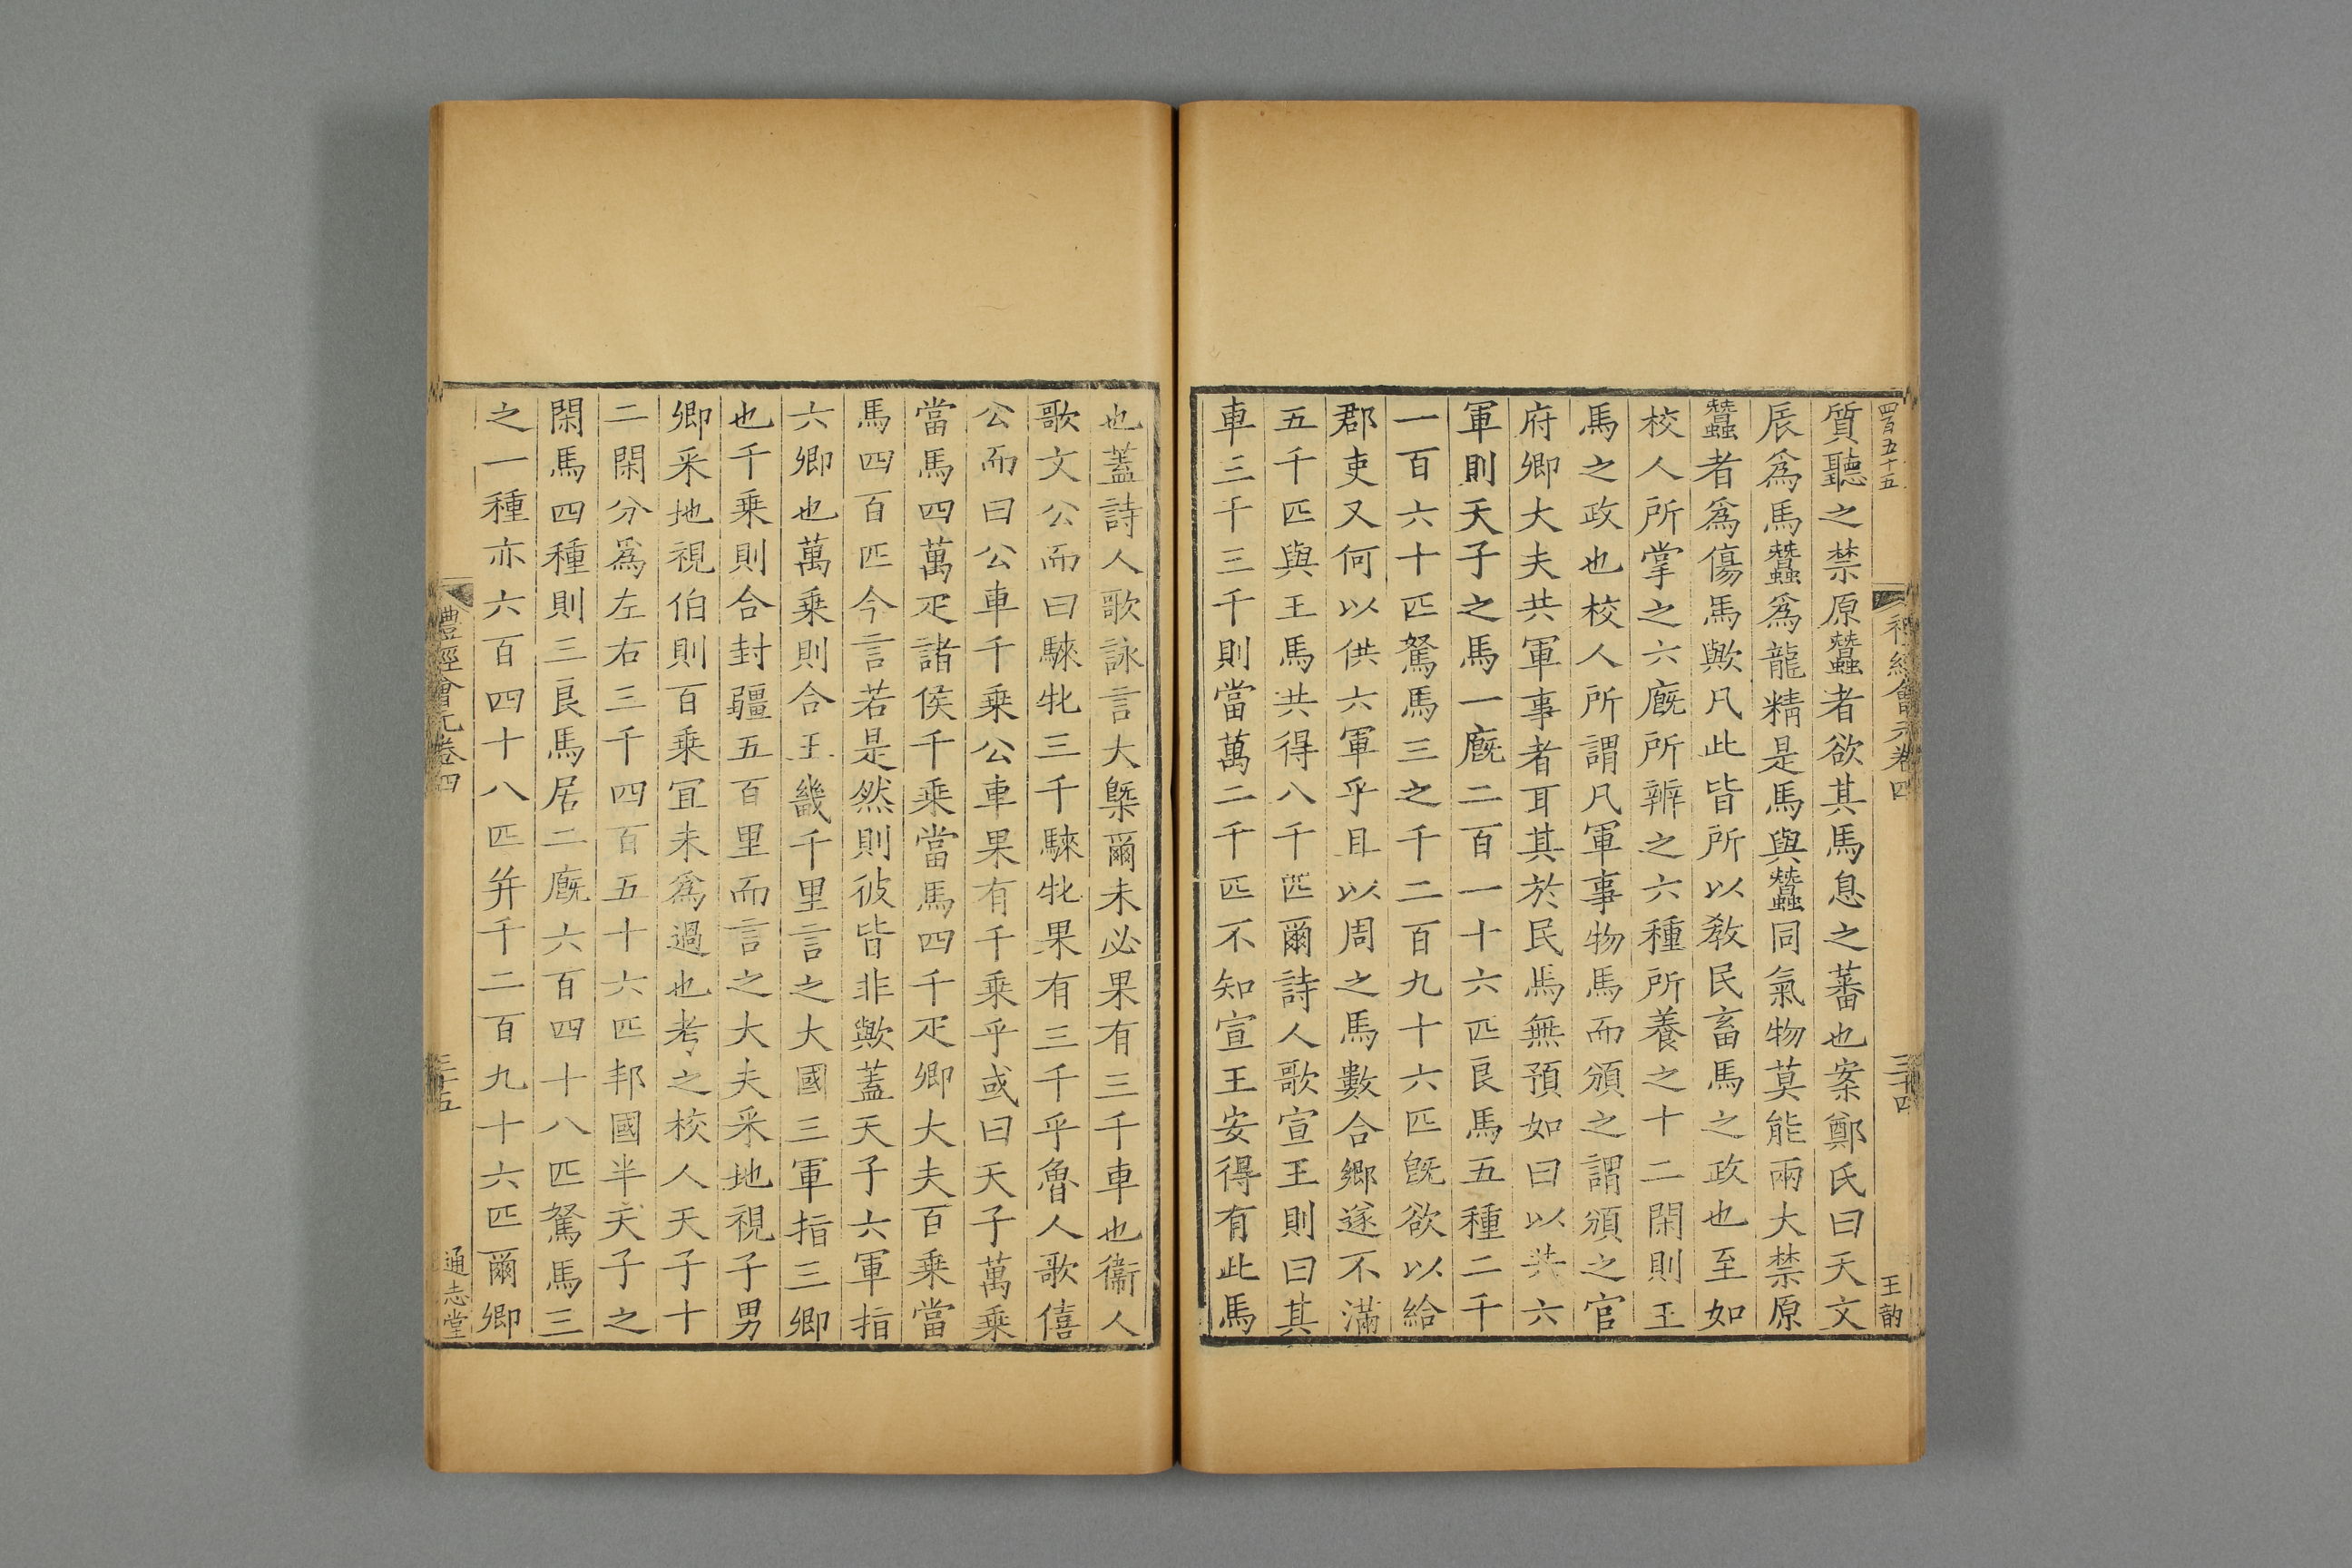 四百五十五
禮經會元卷四
三十四
王韵
質聽之禁原蠶者欲其馬息之蕃也案鄭氏曰天文
辰爲馬蠶爲龍精是馬與蠶同氣物莫能兩大禁原
蠶者爲傷馬歟凡此皆所以教民畜馬之政也至如
校人所掌之六廐所辨之六種所養之十二閑則王
馬之政也校人所謂凡軍事物馬而頒之謂頒之官
府卿大夫共軍事者耳其於民馬無預如曰以共六
軍則天子之馬一廐二百一十六匹良馬五種二千
一百六十匹駑馬三之千二百九十六匹旣欲以給
郡吏又何以供六軍乎且以周之馬數合鄉遂不滿
五千匹與王馬共得八千匹爾詩人歌宣王則曰其
車三千三千則當萬二千匹不知宣王安得有此馬
也蓋詩人歌詠言大槩爾未必果有三千車也衞人
歌文公而曰騋牝三千騋牝果有三千乎魯人歌僖
公而曰公車千乗公車果有千乗乎或曰天子萬乗
當馬四萬疋諸侯千乗當馬四千疋卿大夫百乗當
馬四百匹今言若是然則彼皆非歟蓋天子六軍指
六卿也萬乗則合王畿千里言之大國三軍指三卿
也千乗則合封疆五百里而言之大夫采地視子男
卿采地視伯則百乗宜未爲過也考之校人天子十
二閑分爲左右三千四百五十六匹邦國半天子之
閑馬四種則三良馬居二廐六百四十八匹駑馬三
之一種亦六百四十八匹并千二百九十六匹爾卿
禮經會元卷四
三十五
通志堂